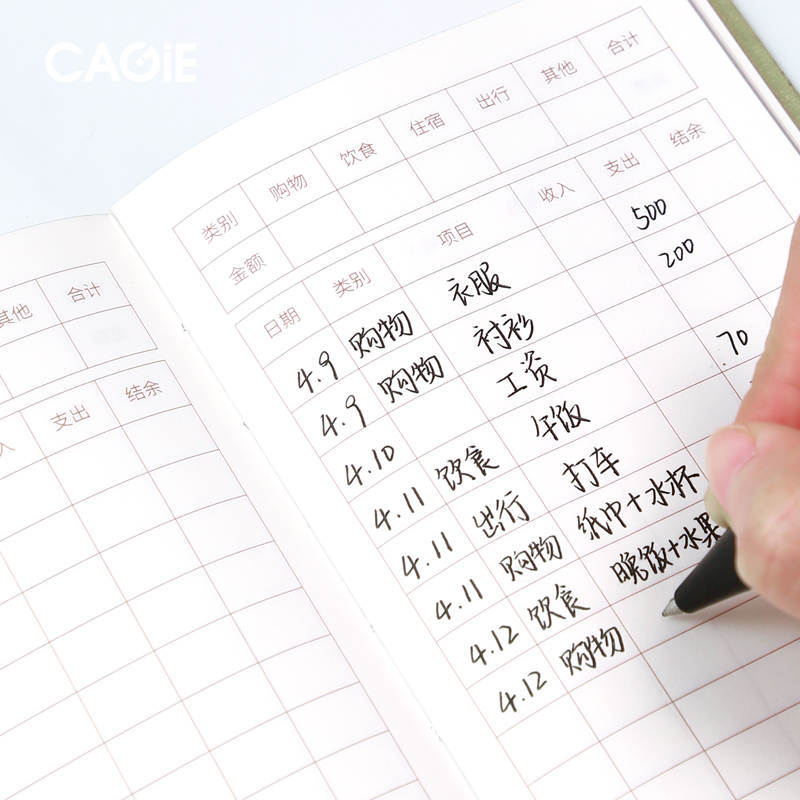 CAGIE
其他 合计
支出 结余
类别 购物 饮食 住宿 出行 其他 合计
金额
日期 类别 项目 收入 支出 结余
4.9 购物 衣服 500
4.9 购物 衬衫 200
4.10 工资
4.11 饮食 午饭 70
4.11 出行 打车
4.11 购物 纸巾+水杯
4.12 饮食 晚饭+水果
4.12 购物